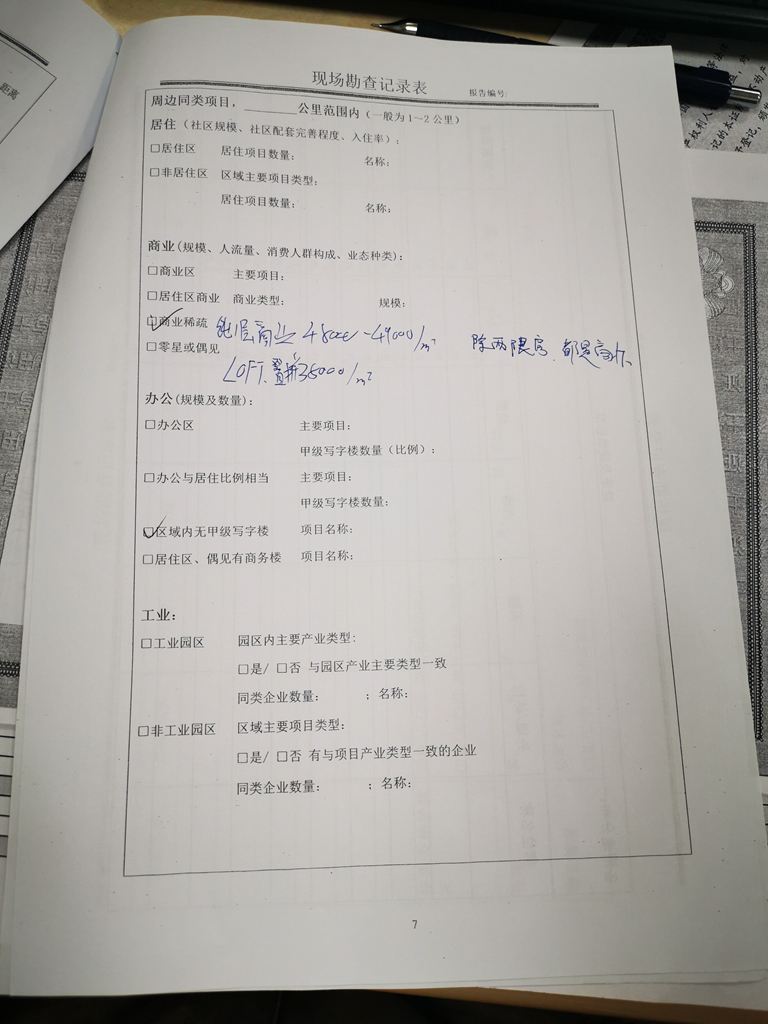 现场勘查记录表
报告编号:
周边同类项目，________公里范围内（一般为1~2公里）
居住（社区规模、社区配套完善程度、入住率）:
□居住区 居住项目数量: 名称:
□非居住区 区域主要项目类型:
居住项目数量: 名称:
商业(规模、人流量、消费人群构成、业态种类):
□商业区 主要项目:
□居住区商业 商业类型: 规模:
☑商业稀疏 商业 48000-49000/m² 除两限房、都是
□零星或偶见
LOFT 38000/m²
办公(规模及数量):
□办公区 主要项目:
甲级写字楼数量（比例）:
□办公与居住比例相当 主要项目:
甲级写字楼数量:
☑区域内无甲级写字楼 项目名称:
□居住区、偶见有商务楼 项目名称:
工业:
□工业园区 园区内主要产业类型:
□是/ □否 与园区产业主要类型一致
同类企业数量: ；名称:
□非工业园区 区域主要项目类型:
□是/ □否 有与项目产业类型一致的企业
同类企业数量: ；名称:
7
距离